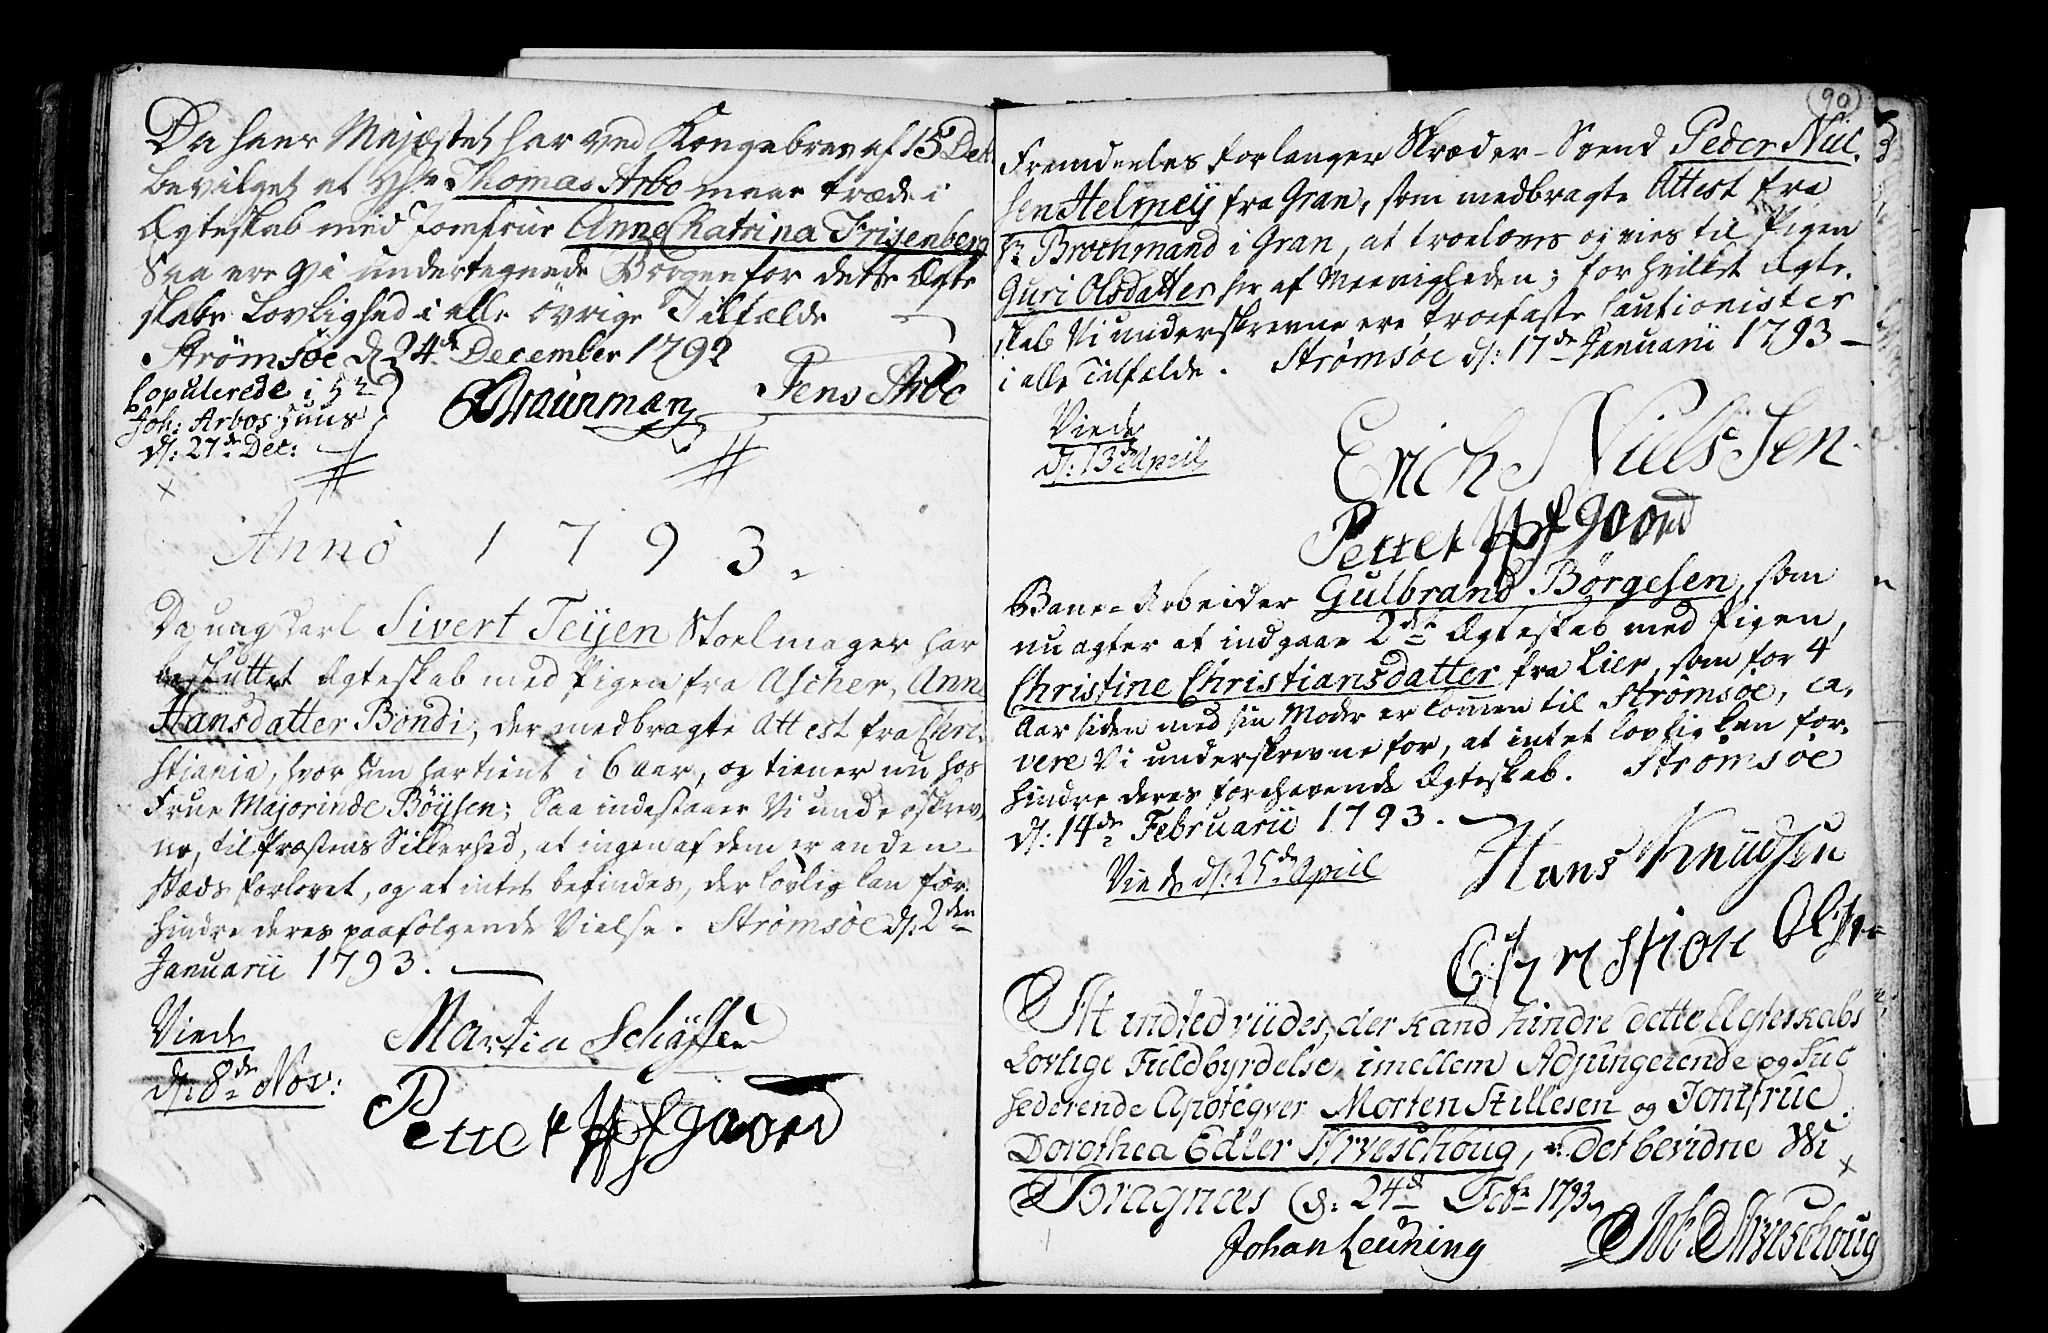 Da hans Majestet har ved Kongebrev af 15 Dec.
bevilget at Hr. Thomas Arbo maae træde i
Ægteskab med Jomfrue Anne Chatrina Frisenberg
Saa ere Vi undertegnede Borgen for dette Ægte
skabs Lovlighed i alle övrige Tilfælde
Strømsöe d. 24de December 1792
Copulerede i Hr
Joh: Arbos Huus
d: 27de Dec:
Jens Arbo
Anno 1793.
Da ung Karl Sivert Teijen Stoelmager har
besluttet Ægteskab med Pigen fra Ascher, Anne
Hansdatter Bondi, der medbragte Attest fra Chri-
stiania, hvor hun har tient i 6 Aar, og tiener nu hos
Frue Majorinde Böijsen; Saa indestaaer Vi underskrev-
ne, til Præstens Sikkerhed, at ingen af dem er anden-
stæds forlovet, og at intet befindes, der lovlig kan for-
hindre deres paafölgende Vielse. Strømsöe d: 2den
Januarii 1793.
Viede
d: 8de Nov:
Martin Schäffer
Petter Hofgaard
90
Fremdeeles forlanger Skræder-Svend Peder Niel-
sen Helmeij fra Gran, som medbragte Attest fra
Hr Brochmand i Gran, at troeloves og vies til Pigen
Guri Olsdatter her af Meenigheden; for hvilket Ægte-
skab Vi underskrevne ere troefaste Cautionister
i alle Tilfælde. Strømsöe d: 17de Januarii 1793
Viede
d: 13de April
Erich Nielssen
Petter Hofgaard
Bane-Arbeider Gulbrand Börgesen, som
nu agter at indgaae 2det Ægteskab med Pigen,
Christine Christiansdatter fra Lier, som for 4
Aar siden med sin Moder er kommen til Strömsöe, ca-
vere Vi underskrevne for, at intet lovlig kan for-
hindre deres forehavende Ægteskab. Strömsöe
d: 14de Februarii 1793.
Viede d: 25de April
Hans Knudsen
At indted viides, der kand hindre dette Ægteskabs
Lovlige Fuldbyrdelse, imellem Adjungerende og Suc
sederende Apoteqver Morten Stillesen og Jomfrue
Dorothea Edler Arveschoug, det bevidne Wi
Bragnæs d: 24de Febr 1793
Johan Leüning
Arveschoug